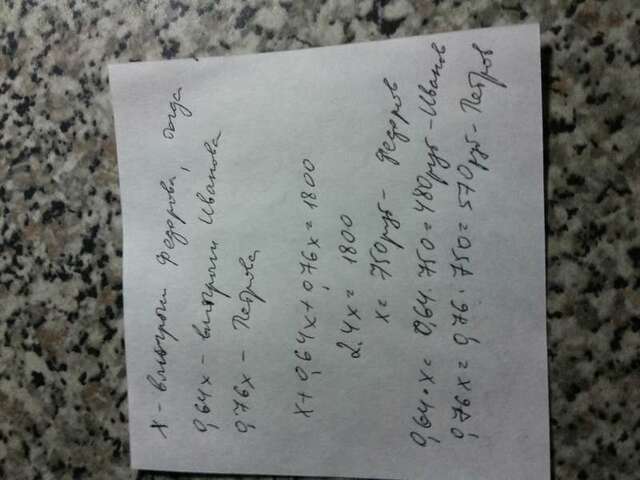 x - выигрыш Федорова, тогда
0,64x - выигрыш Иванова
0,76x - Петрова
x+0,64x+0,76x=1800
2,4x=1800
x=750руб - Федоров
0,64•x=0,64•750=480руб-Иванов
0,76x=0,76•750=570руб-Петров